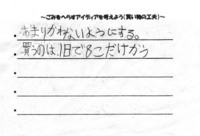 ～ごみをへらすアイディアを考えよう(買い物の工夫)～
あまりかわないようにする。
買うのは、1日で8こだけかう